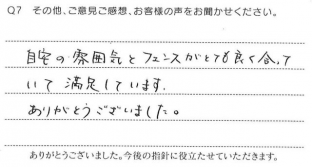 Q7 その他、ご意見ご感想、お客様の声をお聞かせください。
自宅の雰囲気とフェンスがとても良く合って
いて満足しています。
ありがとうございました。
ありがとうございました。今後の指針に役立たせていただきます。